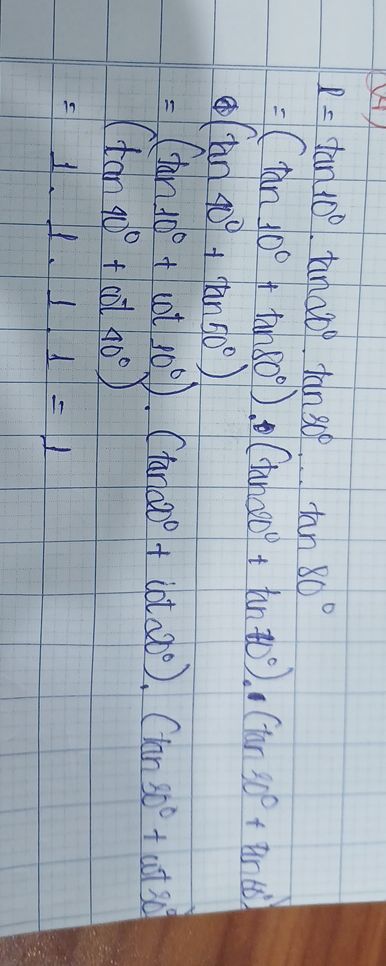 P = tan 10° . tan 20° . tan 30° ... tan 80°
= (tan 10° + tan 80°) . (tan 20° + tan 70°) . (tan 30° + tan 60°)
. (tan 40° + tan 50°)
= (tan 10° + cot 10°) . (tan 20° + cot 20°) . (tan 30° + cot 30°
(tan 40° + cot 40°)
= 1 . 1 . 1 . 1 = 1